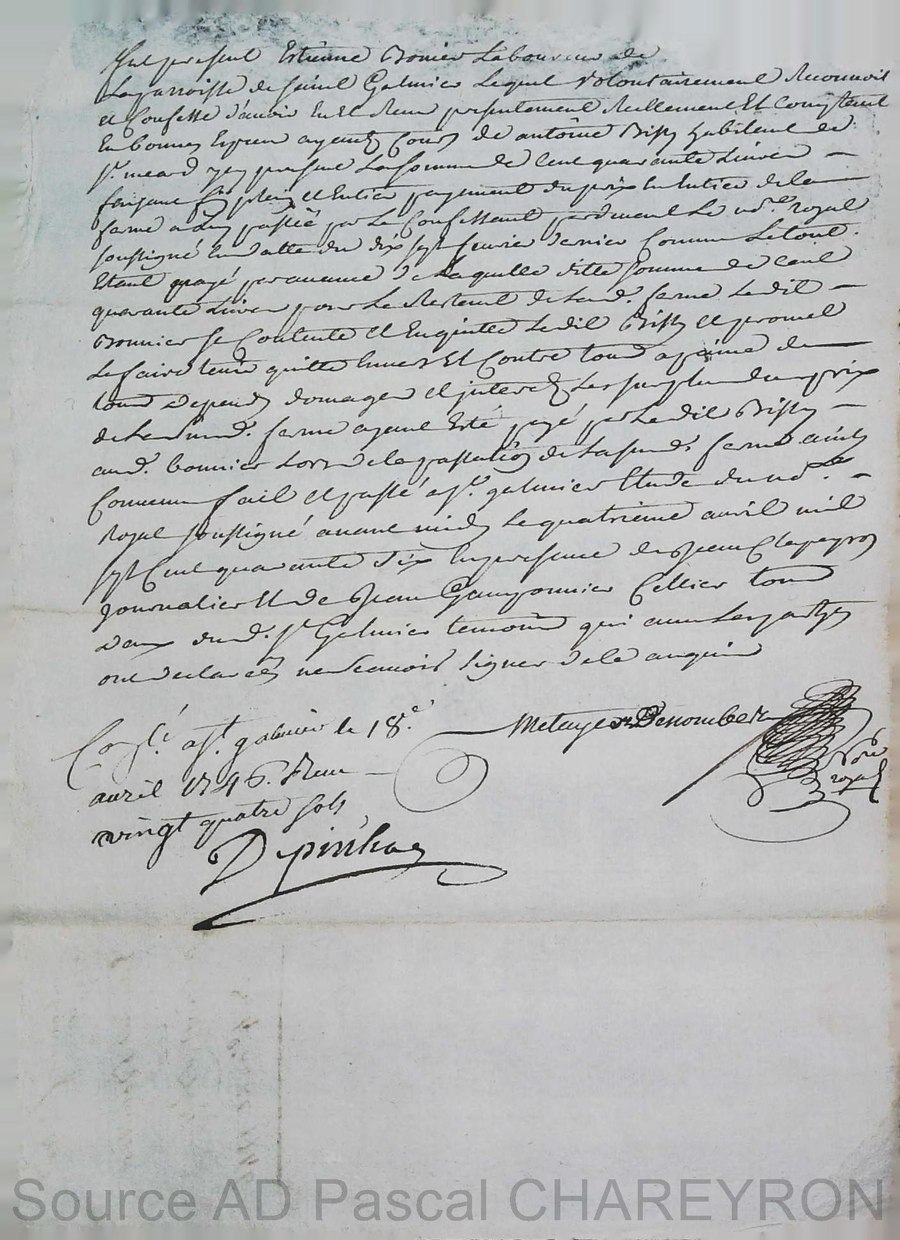 fut present Estienne Bonier Laboureur de
La parroisse de saint Galmier Lequel volontairement Reconnoit
et Confesse d'avoir Eu Et Receu presentement Reellement Et Comptent
En bonnes Especes ayentz Cours de antoine Bissy habitent de
St. meard yey present La somme de Cent quarante Livres
faisant Le plein et Entier payement du prix Entier de la
ferme a Luy passée par Le Confessant pardevant Le no.re royal
soussigné En datte du dix sept fevrier dernier Comme Le tout
Etant payé par avance de Laquelle ditte somme de Cent
quarante Livres pour Le Restent de Lad. ferme Le dit
Bonnier se Contente et En quitte Le dit Bissy et promet
Le faire tenir quitte Envers Et Contre tous a peine de
tous depends domages et interetz Le surplus du prix
de La susd. ferme ayent Esté payé par Le dit Bissy
aud. bonnier Lors de la passation de La susd. ferme ainsy
Convenu fait et passé a St. galmier Etude du no.re
Royal soussigné avant midy Le quatrieme avril mil
sept Cent quarante six En presence de Jean Clapeyron
Journalier Et de Jean Cellier tous
deux dud. St. Galmier temoins qui avec Les parties
ont declarés ne scavoir signer de ce enquis
Metayer Denombel
no.re
royal
Con.lé a St. galmier le 18.e
avril 1746. Receu
vingt quatre sols
Depinhac
Source AD Pascal CHAREYRON